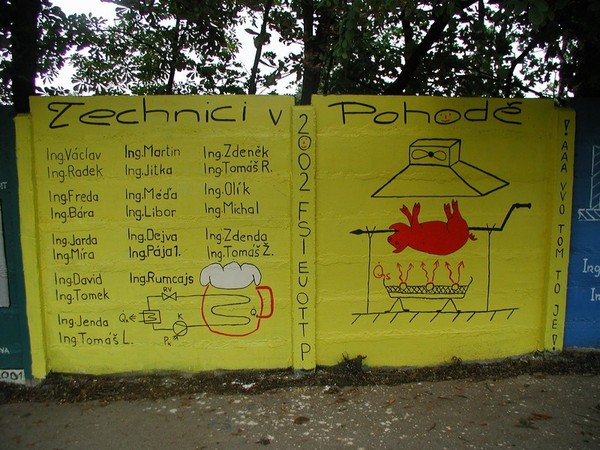 Technici v Pohodě
Ing.Václav
Ing.Radek
Ing.Freda
Ing.Bára
Ing.Jarda
Ing.Míra
Ing.David
Ing.Tomek
Ing.Jenda
Ing.Tomáš L.
Ing.Martin
Ing.Jitka
Ing.Méďa
Ing.Libor
Ing.Dejva
Ing.Pája1.
Ing.Rumcajs
Ing.Zdeněk
Ing.Tomáš R.
Ing.Olík
Ing.Michal
Ing.Zdenda
Ing.Tomáš Ž.
RV
K
2002 FSI EU OTTP
! AAA VVO TOM TO JE !